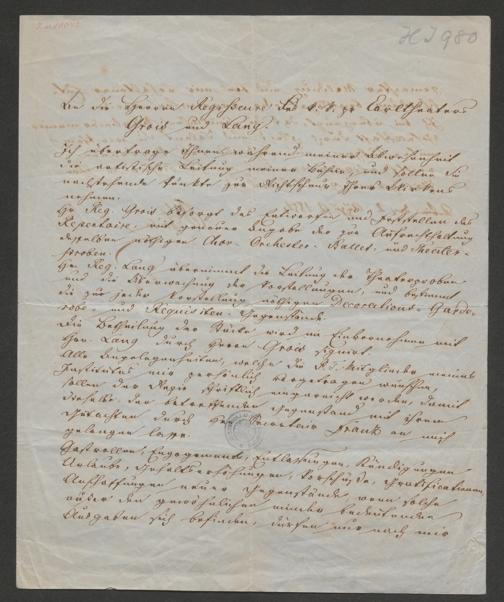 HJ 980
An die Herren Regisseure des k. k. pr. Carltheaters
Grois und Lang.
Ich übertrage Ihnen während meiner Abwesenheit
die artistische Leitung meiner Bühne, und sollen die
nachstehende Punkte zur Richtschnur Ihres Wirkens
nehmen.
Hr. Reg. Grois besorgt das Entwerfen und Feststellen des
Repertoirs, mit genauer Angabe der zur Aufrechthaltung
desselben nöthigen Chor- Orchester- Ballet- und
proben.
Hr. Reg. Lang übernimmt die Leitung der Theaterproben
und die Überwachung der Vorstellungen, und bestimmt
die zur jeder Vorstellung nöthigen Decorations- Garde-
robe- und Requisiten- Gegenstände.
Die Betheilung der Stücke wird im Einvernehmen mit
Hrn. Lang durch Herrn Grois signirt.
Alle Angelegenheiten, welche die Mitglieder meines
Institutes mir persönlich vorgetragen wünschen,
sollen der Regie schriftlich eingereicht werden, damit
dieselbe den betreffenden Gegenstand mit ihrem
Gutachten durch Hrn. Secretair Frank an mich
gelangen lasse.
Gastrollen, Engagements, Entlassungen, Kündigungen
Urlaube, Gehaltserhöhungen, Vorschüsse, Gratificationen,
Anschaffungen neuer Gegenstände, wenn solche
außer den gewöhnlichen minder bedeutenden
Ausgaben sich befinden, dürfen nur nach mir